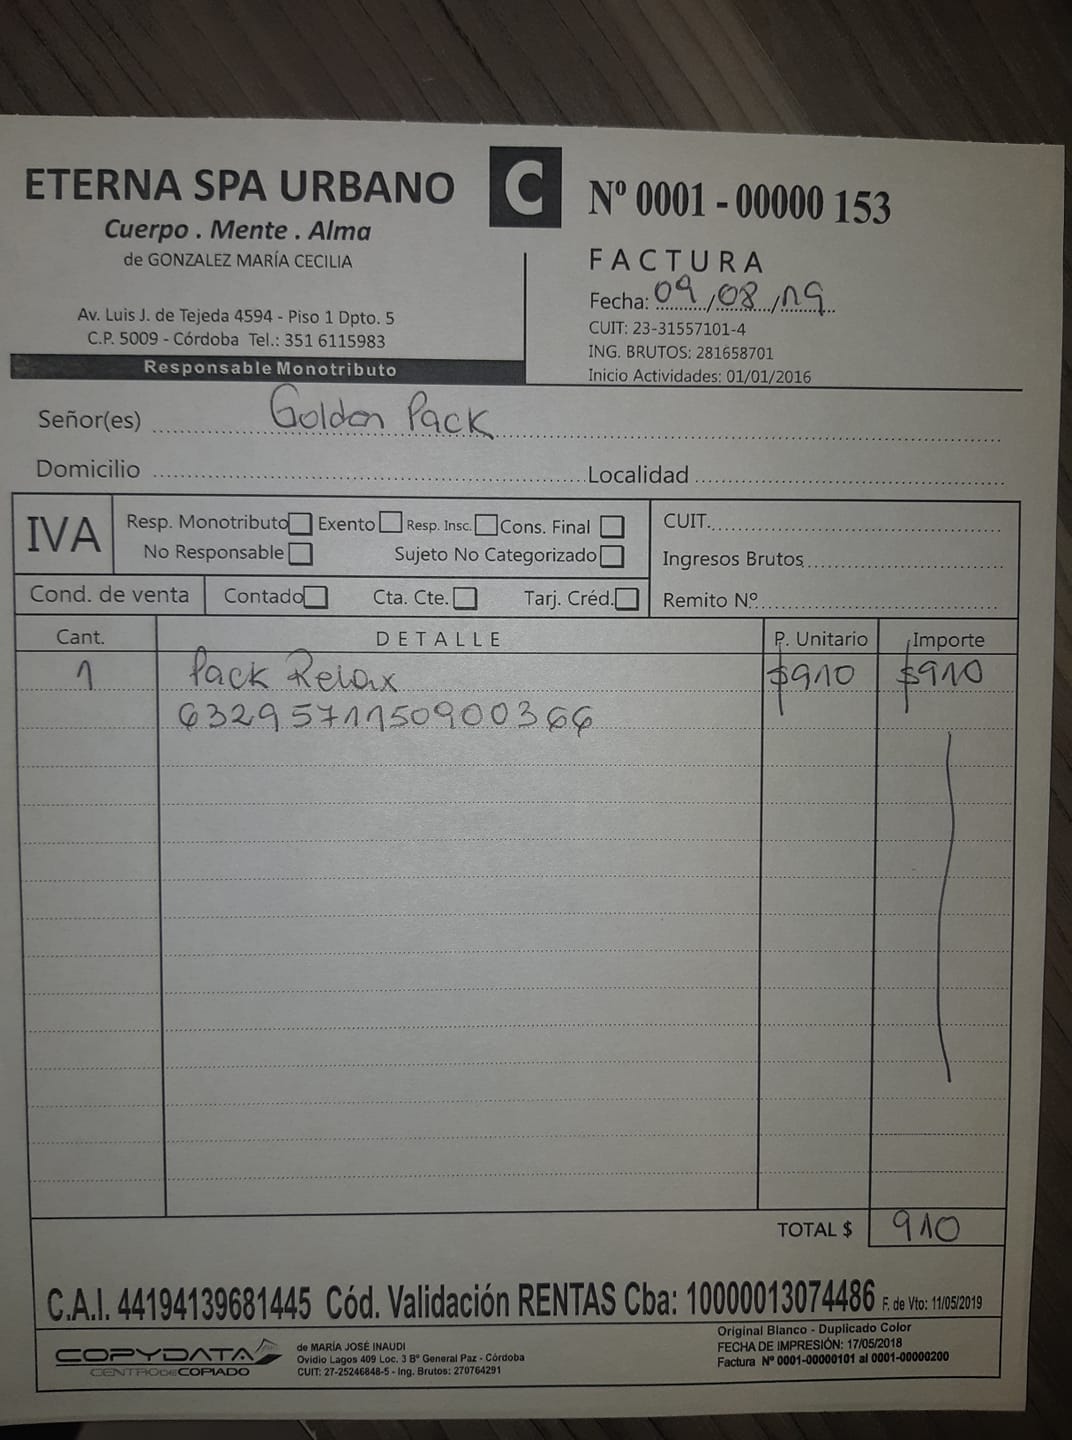 ETERNA SPA URBANO
Cuerpo . Mente . Alma
de GONZALEZ MARÍA CECILIA
Av. Luis J. de Tejeda 4594 - Piso 1 Dpto. 5
C.P. 5009 - Córdoba Tel.: 351 6115983
Responsable Monotributo
C
Nº 0001 - 00000 153
FACTURA
Fecha: 09/08/19
CUIT: 23-31557101-4
ING. BRUTOS: 281658701
Inicio Actividades: 01/01/2016
Señor(es) Golden Pack
Domicilio Localidad
IVA
Resp. Monotributo Exento Resp. Insc. Cons. Final
No Responsable Sujeto No Categorizado
Cond. de venta Contado Cta. Cte. Tarj. Créd.
CUIT.
Ingresos Brutos
Remito Nº
Cant. DETALLE P. Unitario Importe
1 Pack Relax $910 $910
6329571150900366
TOTAL $ 910
C.A.I. 44194139681445 Cód. Validación RENTAS Cba: 10000013074486 F. de Vto: 11/05/2019
COPYDATA
CENTRO DE COPIADO
de MARÍA JOSÉ INAUDI
Ovidio Lagos 409 Loc. 3 Bº General Paz - Córdoba
CUIT: 27-25246848-5 - Ing. Brutos: 270764291
Original Blanco - Duplicado Color
FECHA DE IMPRESIÓN: 17/05/2018
Factura Nº 0001-00000101 al 0001-00000200